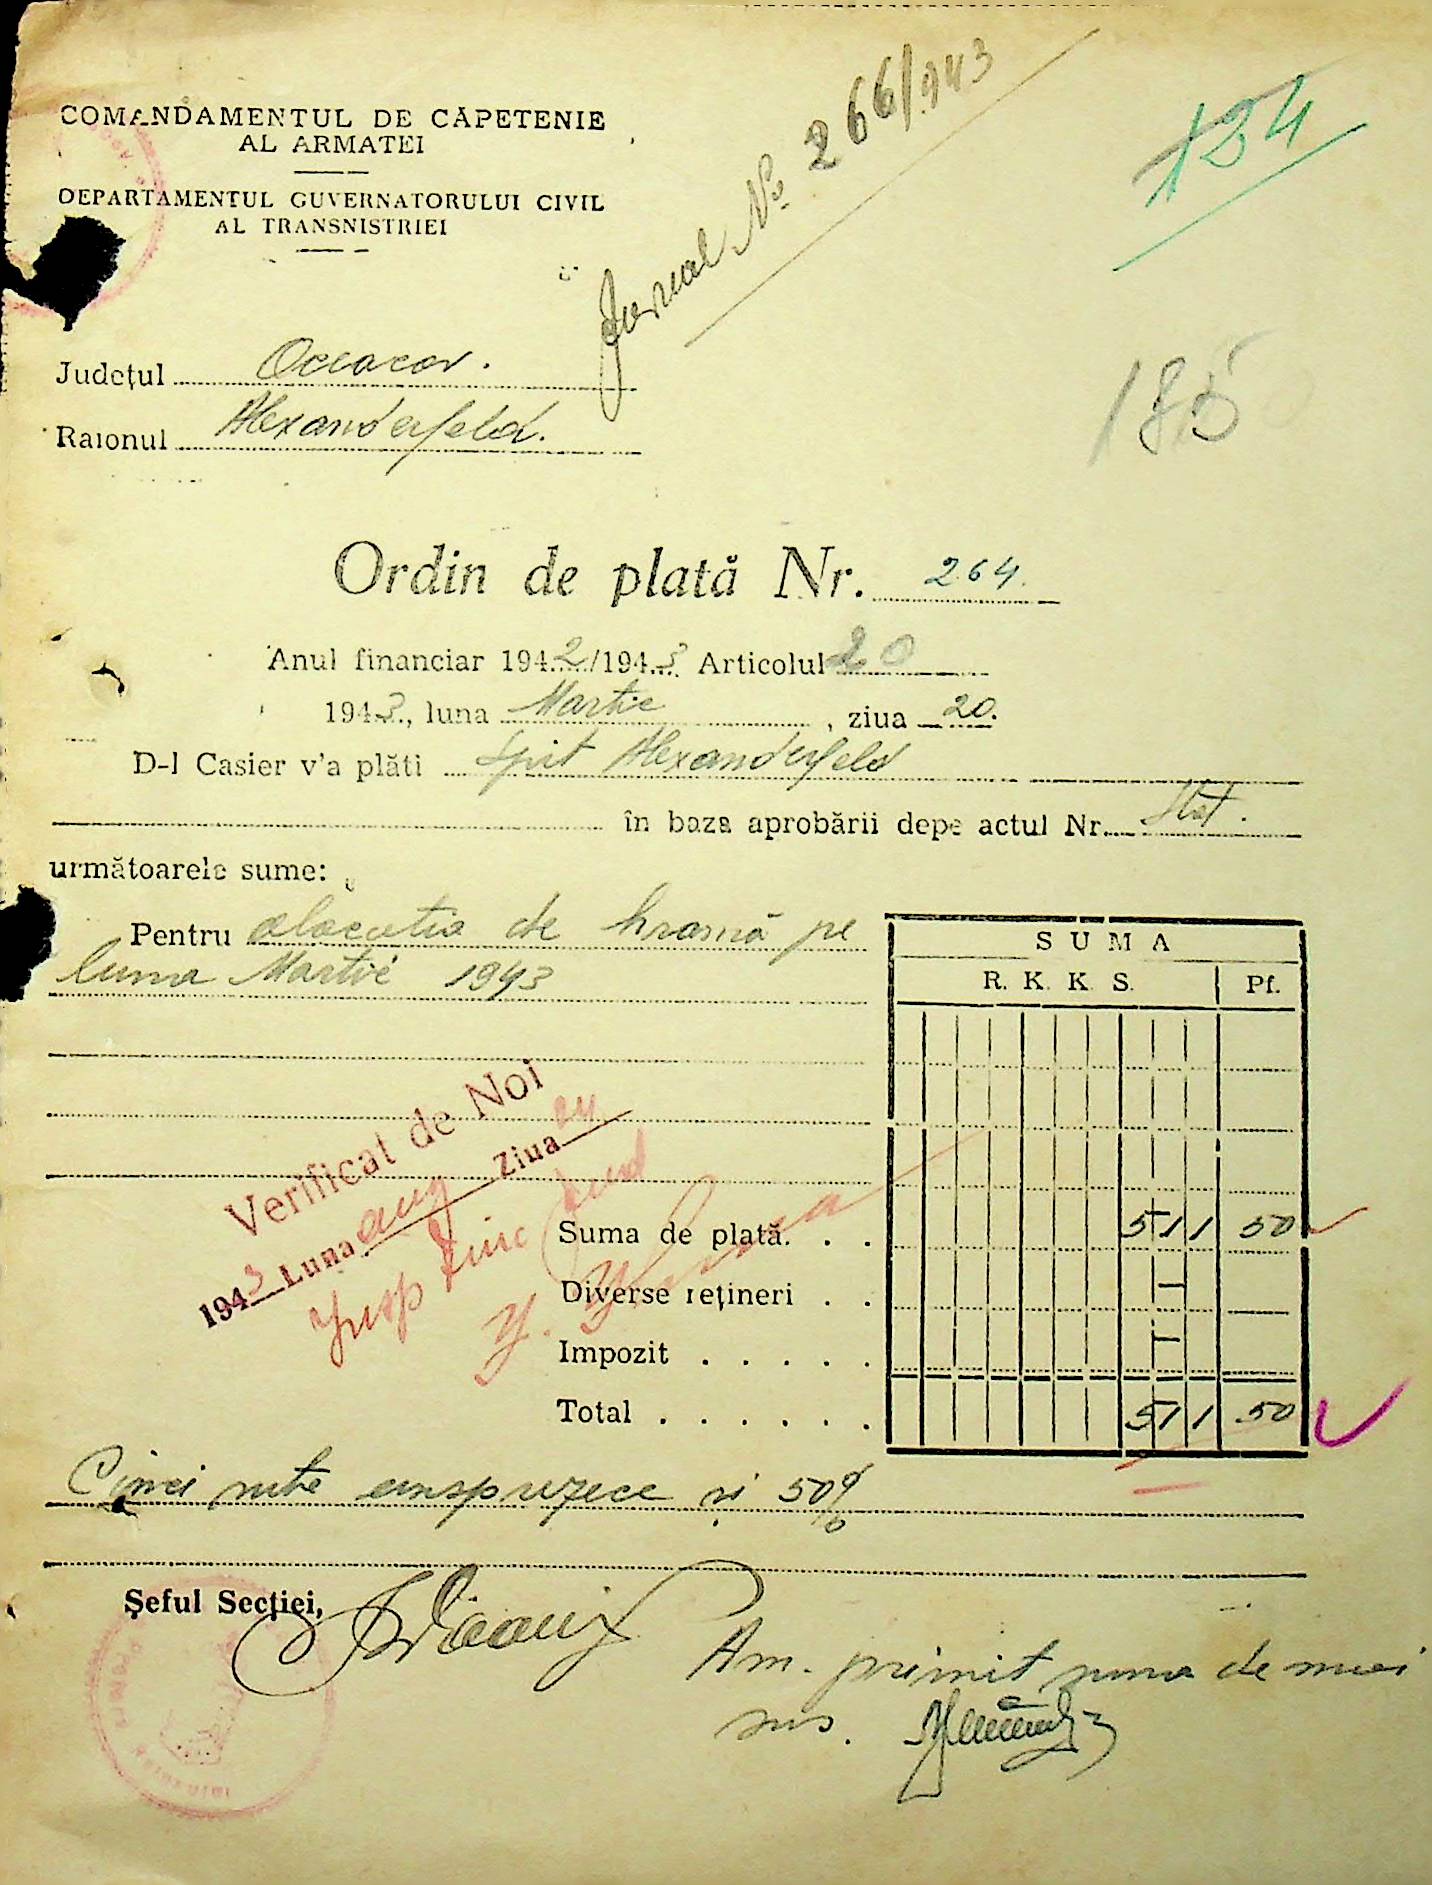 COMANDAMENTUL DE CĂPETENIE
AL ARMATEI
DEPARTAMENTUL GUVERNATORULUI CIVIL
AL TRANSNISTRIEI
Jurnal No 266/943
134
185
Județul Oceacov.
Raionul Alexanderfeld.
Ordin de plată Nr. 264.
Anul financiar 1942/1943 Articolul 20
1943, luna Martie, ziua 20.
D-l Casier v'a plăti Spit Alexanderfeld
în baza aprobării depe actul Nr. Stat.
următoarele sume:
Pentru alocatia de hrană pe
luna Martie 1943
SUMA
R. K. K. S. Pf.
Verificat de Noi
1943 Luna aug Ziua 24
Insp
Suma de plată. . . 511 50
Diverse rețineri . . —
Impozit . . . . . —
Total . . . . . . 511 50
Cinci sute unsprezece și 50%
Șeful Secției,
Am primit suma de mai
sus.